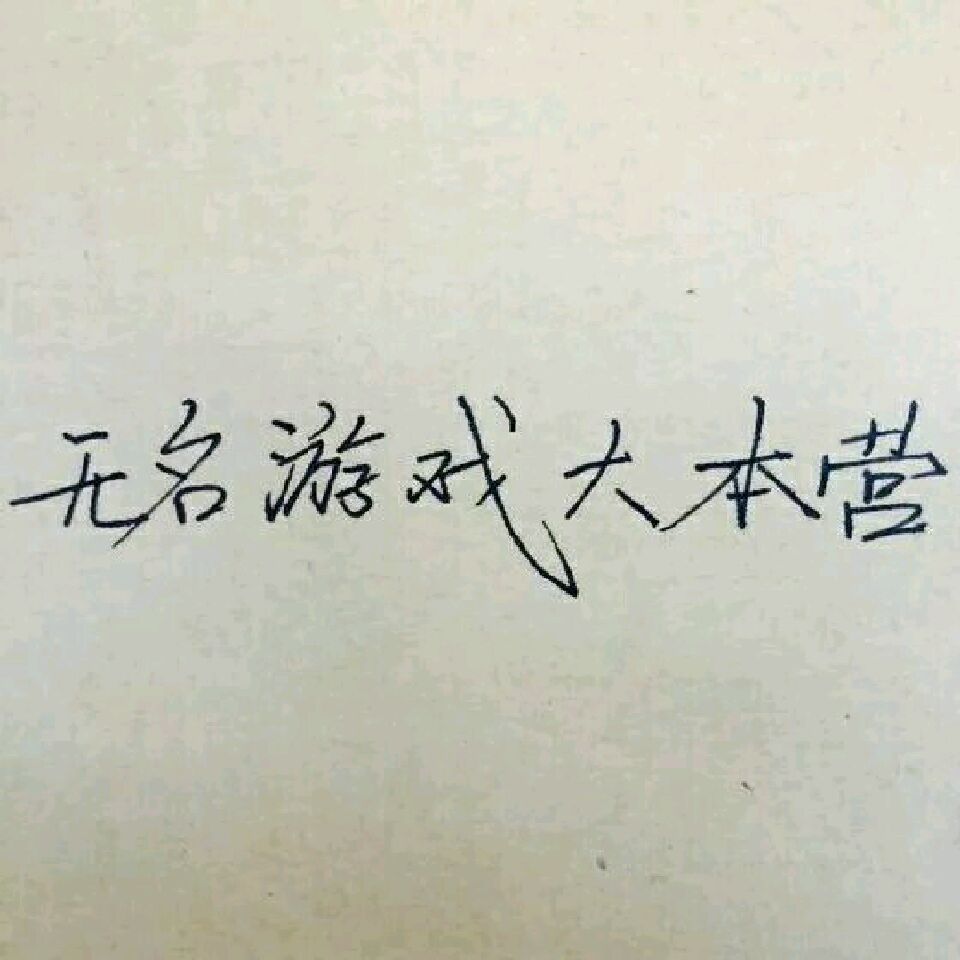 无名游戏大本营